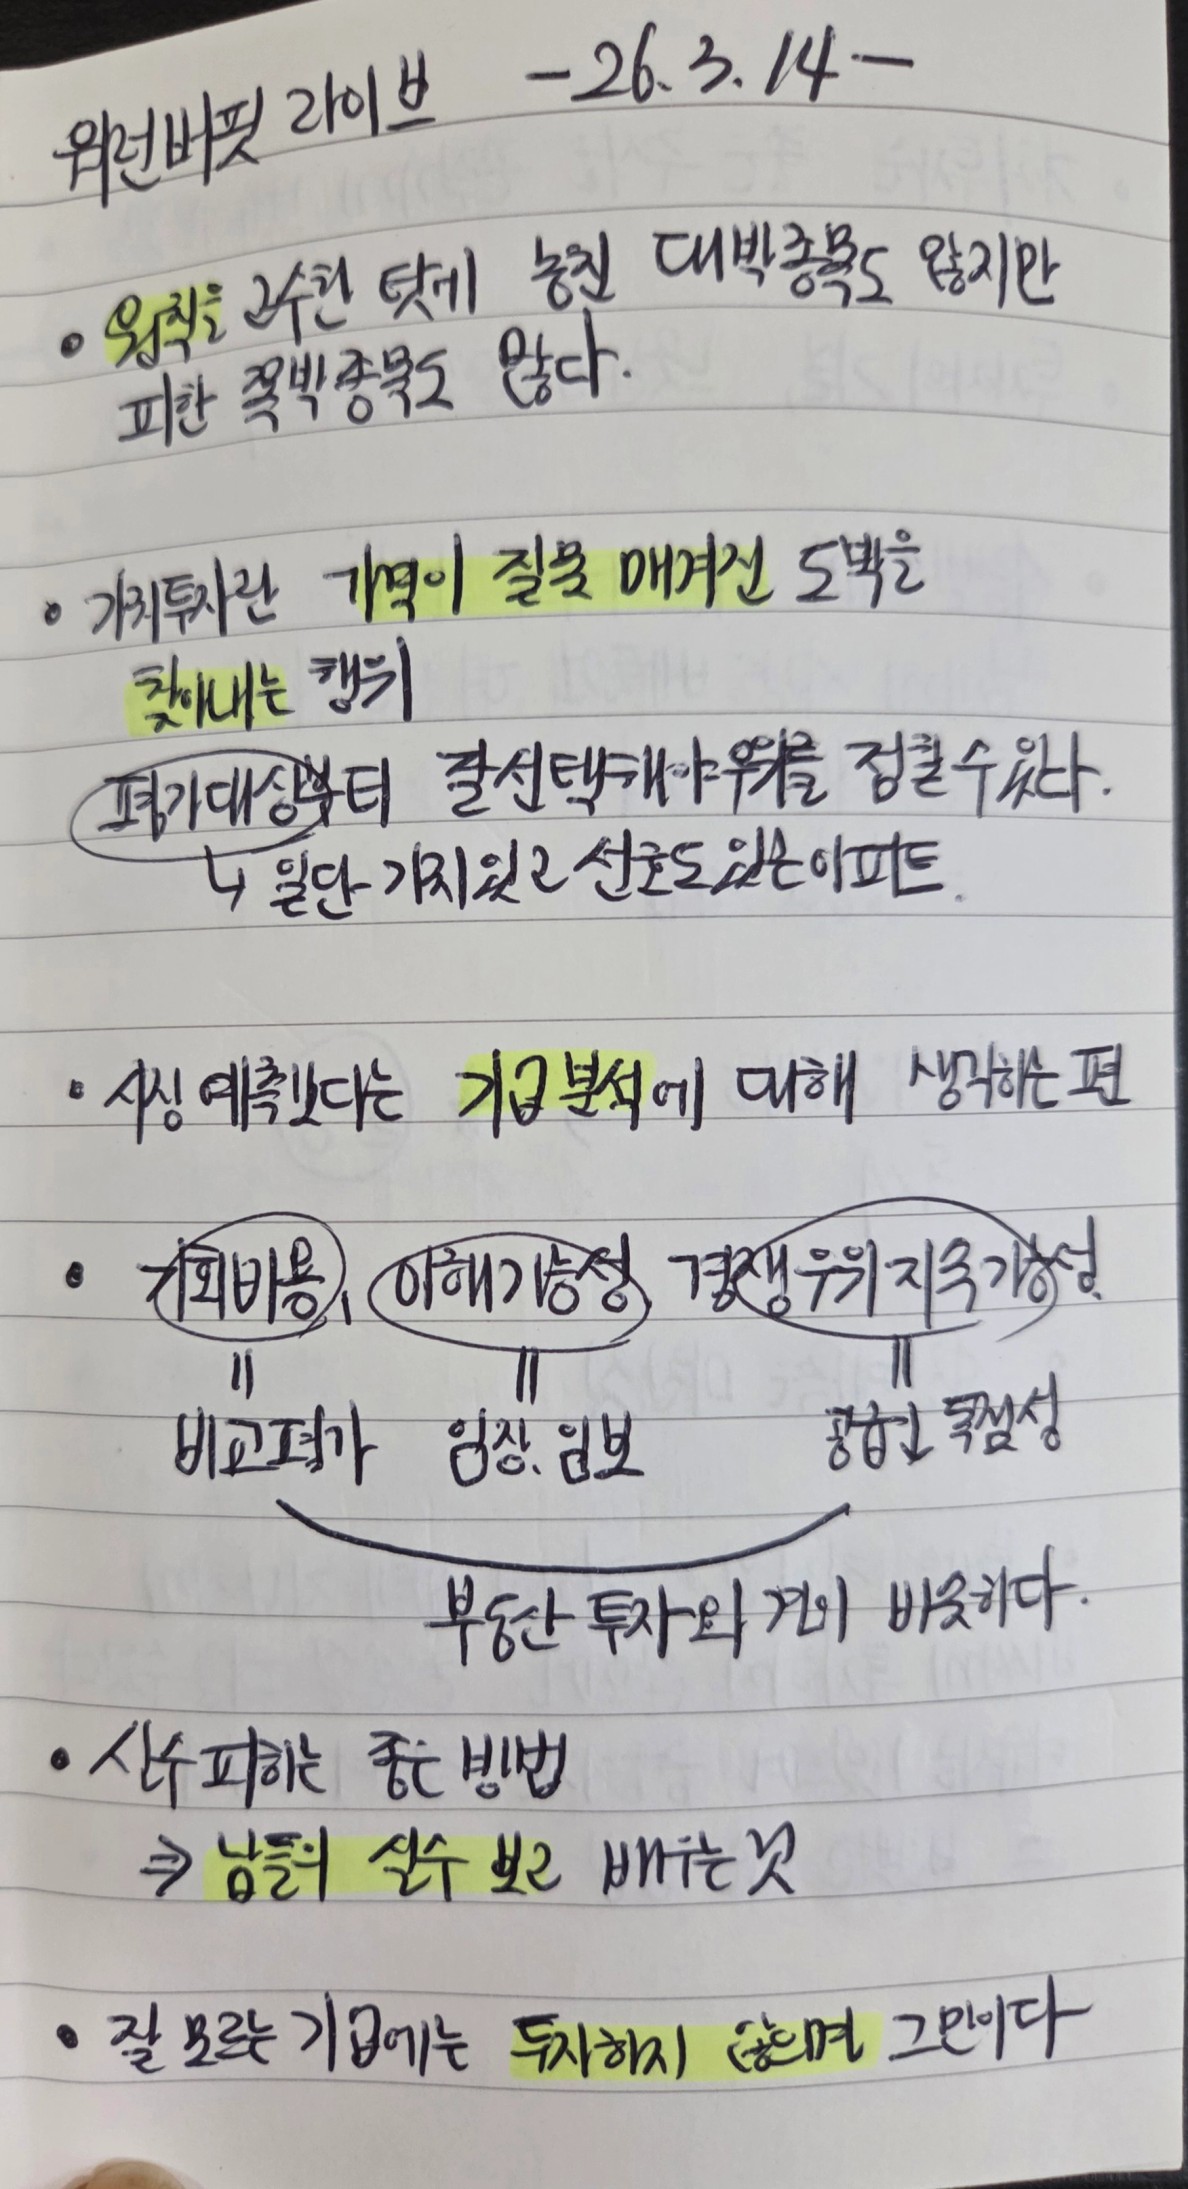 워런버핏 라이브 -26. 3. 14-
• 원칙을 고수한 탓에 놓친 대박종목도 많지만
피한 쪽박종목도 많다.
• 가치투자란 가격이 잘못 매겨진 도박을
찾아내는 행위
평가대상부터 잘선택해야 우위를 점할 수 있다.
↳ 일단 가치있고 선호도있는아파트.
• 시장 예측보다는 기업분석에 대해 생각하는 편
• 기회비용, 이해가능성, 경쟁우위 지속가능성.
= = =
비교평가 임장.임보 공급 독점성
부동산 투자와 결이 비슷하다.
• 실수 피하는 좋은 방법
⇒ 남들의 실수 보고 배우는 것
• 잘 모르는 기업에는 투자하지 않으면 그만이다